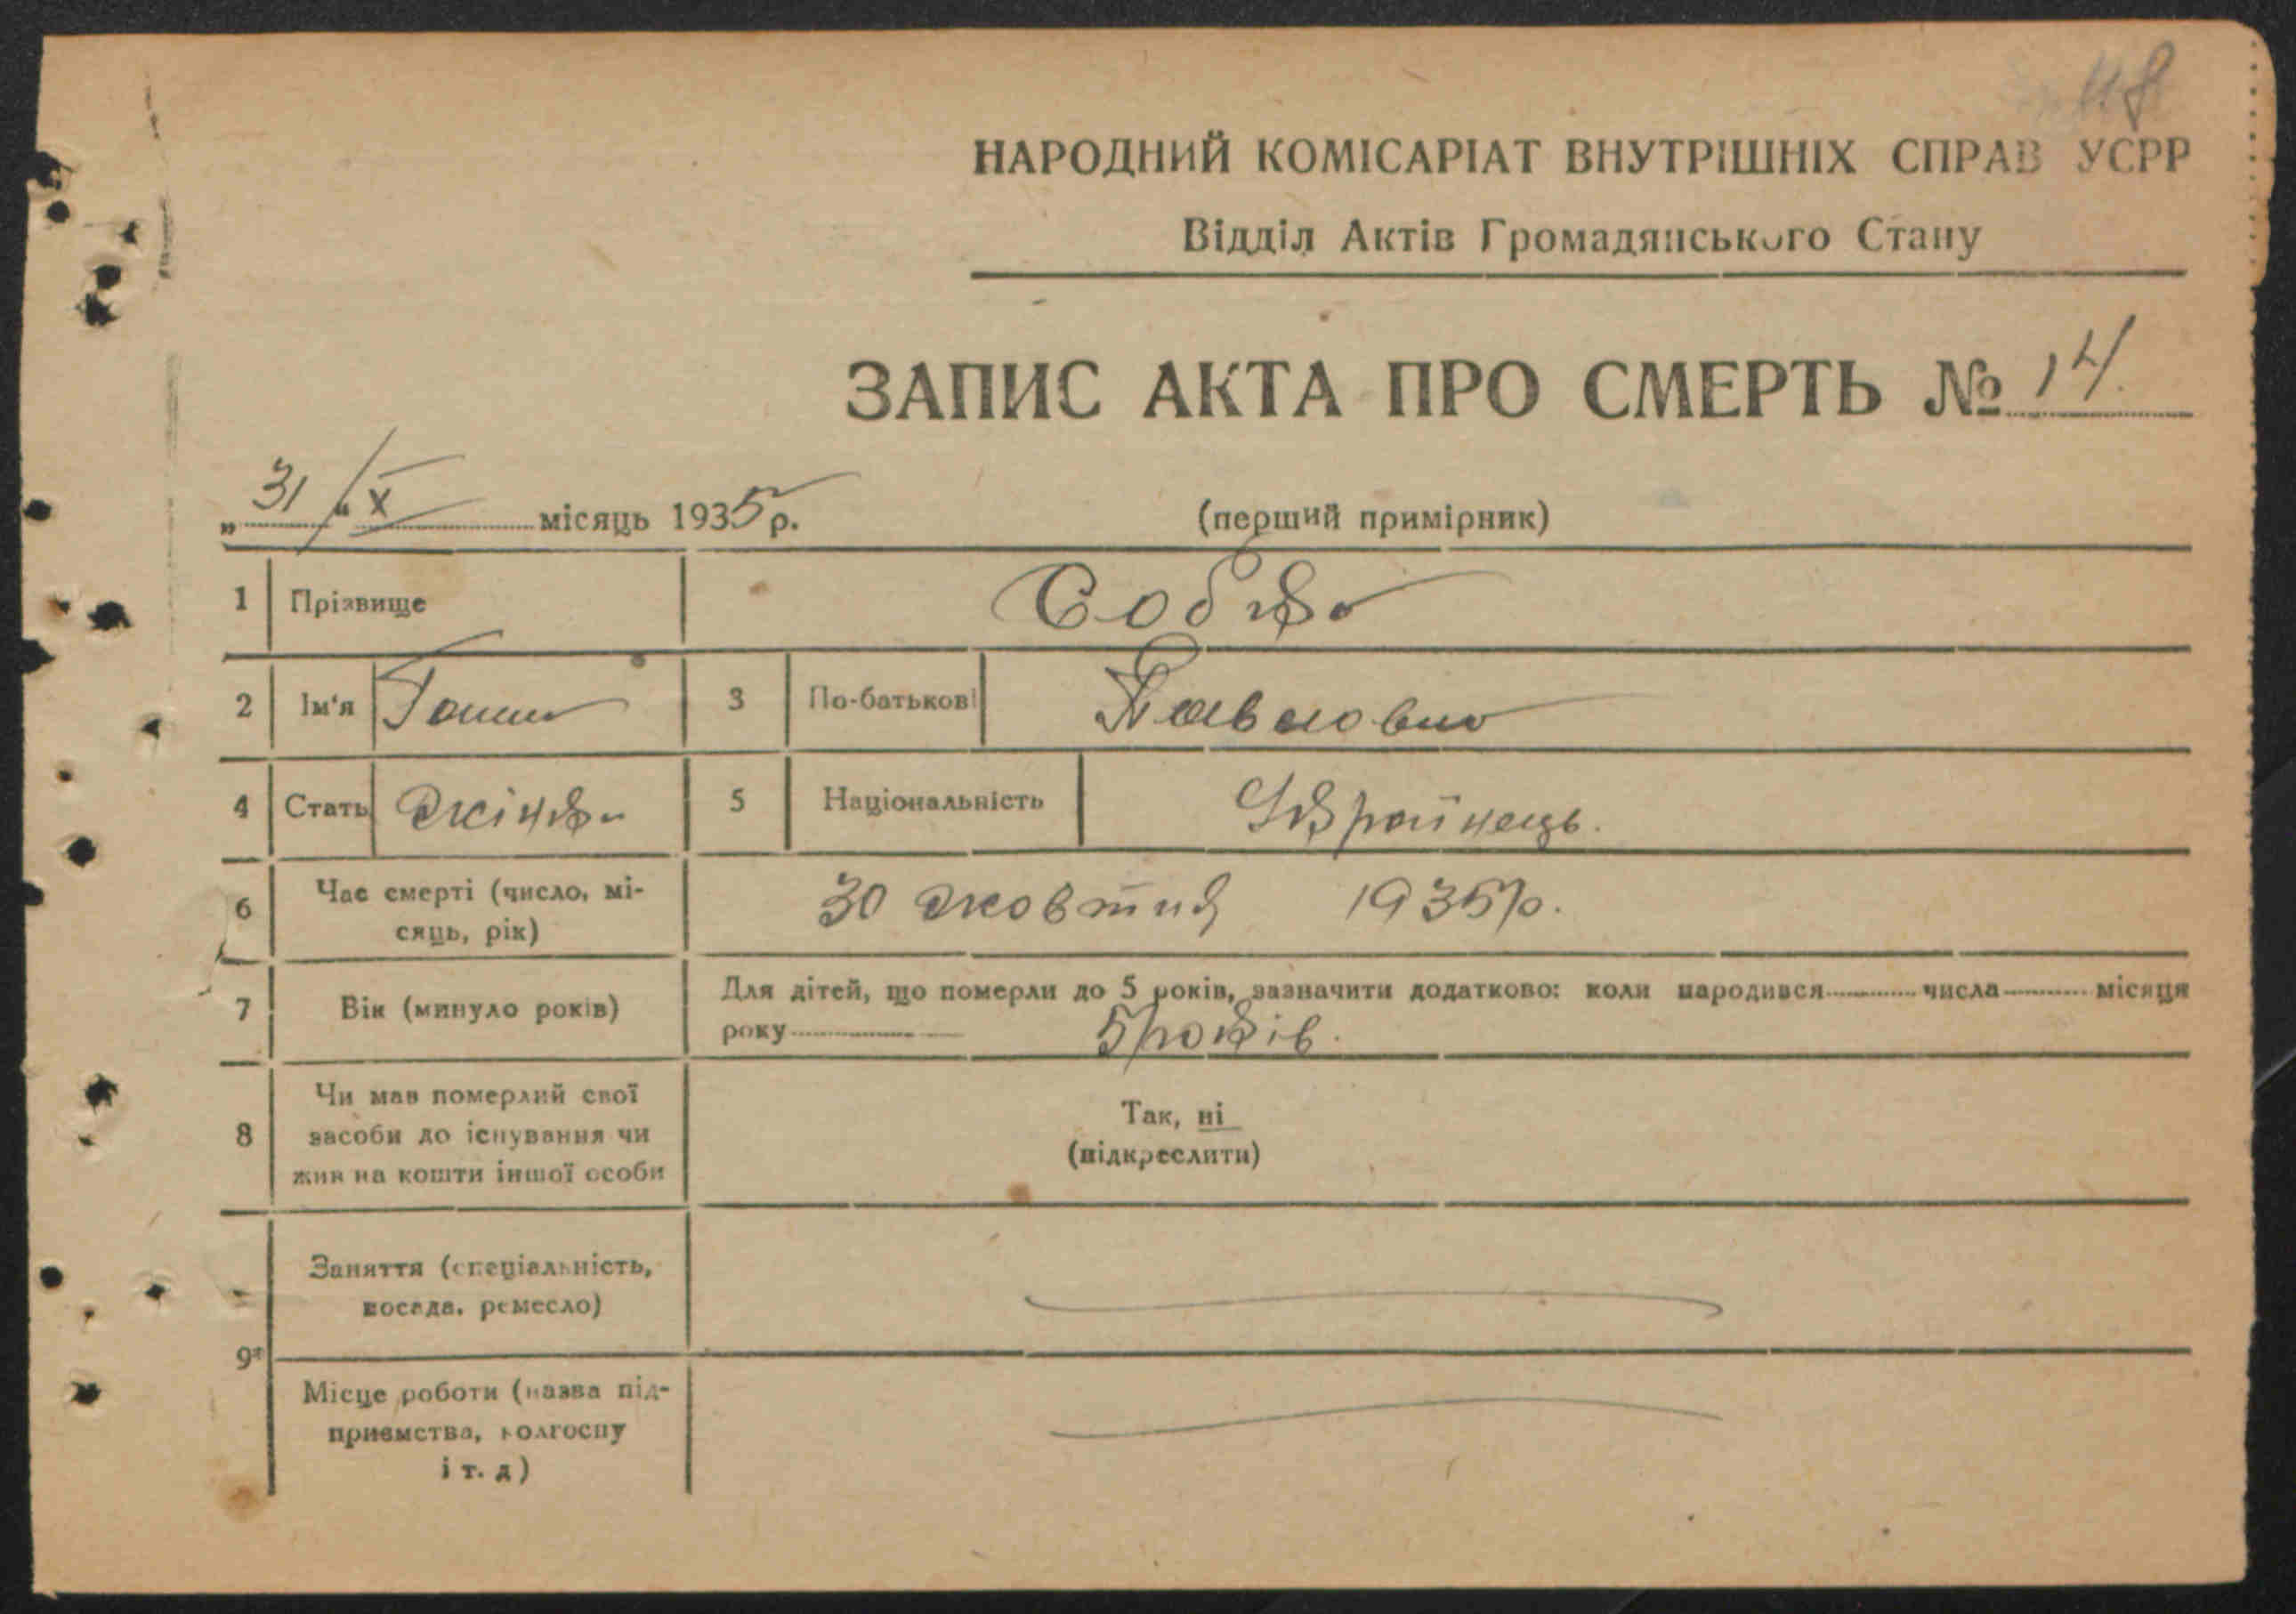 118
НАРОДНИЙ КОМІСАРІАТ ВНУТРІШНІХ СПРАВ УСРР
Відділ Актів Громадянського Стану
ЗАПИС АКТА ПРО СМЕРТЬ № 14.
„31“ X місяць 1935 р. (перший примірник)
1 Прізвище Собко
2 Ім'я Ганна 3 По-батькові Павловна
4 Стать жінка 5 Національність Українець.
6 Час смерті (число, мі-
сяць, рік) 30 жовтня 1935 р.
7 Вік (минуло років) Для дітей, що померли до 5 років, зазначити додатково: коли народився числа місяця
року 5 років.
8 Чи мав померлий свої
засоби до існування чи
жив на кошти іншої особи
Так, ні
(підкреслити)
9* Заняття (спеціальність,
посада, ремесло)
Місце роботи (назва під-
приємства, колгоспу
і т. д)